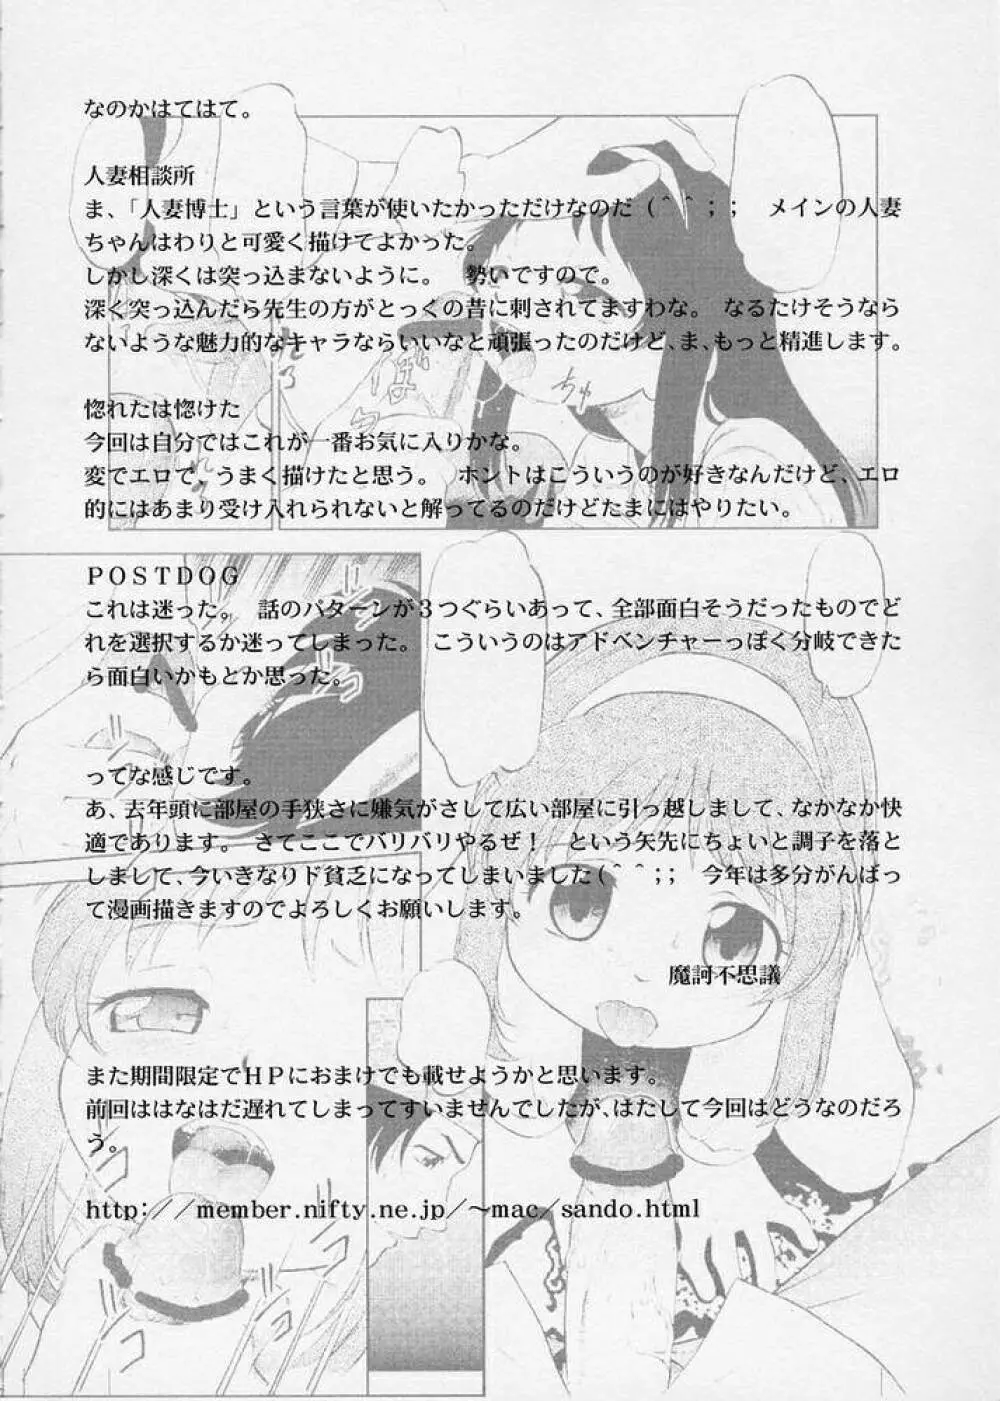 なのかはてはて。
人妻相談所
ま、「人妻博士」という言葉が使いたかっただけなのだ（＾＾；；　メインの人妻
ちゃんはわりと可愛く描けてよかった。
しかし深くは突っ込まないように。　勢いですので。
深く突っ込んだら先生の方がとっくの昔に刺されてますわな。　なるたけそうなら
ないような魅力的なキャラならいいなと頑張ったのだけど、ま、もっと精進します。
惚れたは惚けた
今回は自分ではこれが一番お気に入りかな。
変でエロで、うまく描けたと思う。　ホントはこういうのが好きなんだけど、エロ
的にはあまり受け入れられないと解ってるのだけどたまにはやりたい。
ＰＯＳＴＤＯＧ
これは迷った。　話のパターンが３つぐらいあって、全部面白そうだったものでど
れを選択するか迷ってしまった。　こういうのはアドベンチャーっぽく分岐できた
ら面白いかもとか思った。
ってな感じです。
あ、去年頭に部屋の手狭さに嫌気がさして広い部屋に引っ越しまして、なかなか快
適であります。　さてここでバリバリやるぜ！　という矢先にちょいと調子を落と
しまして、今いきなりド貧乏になってしまいました（＾＾；；　今年は多分がんばっ
て漫画描きますのでよろしくお願いします。
魔訶不思議
また期間限定でＨＰにおまけでも載せようかと思います。
前回ははなはだ遅れてしまってすいませんでしたが、はたして今回はどうなのだろ
う。
http://member.nifty.ne.jp/～mac/sando.html
ちゅ